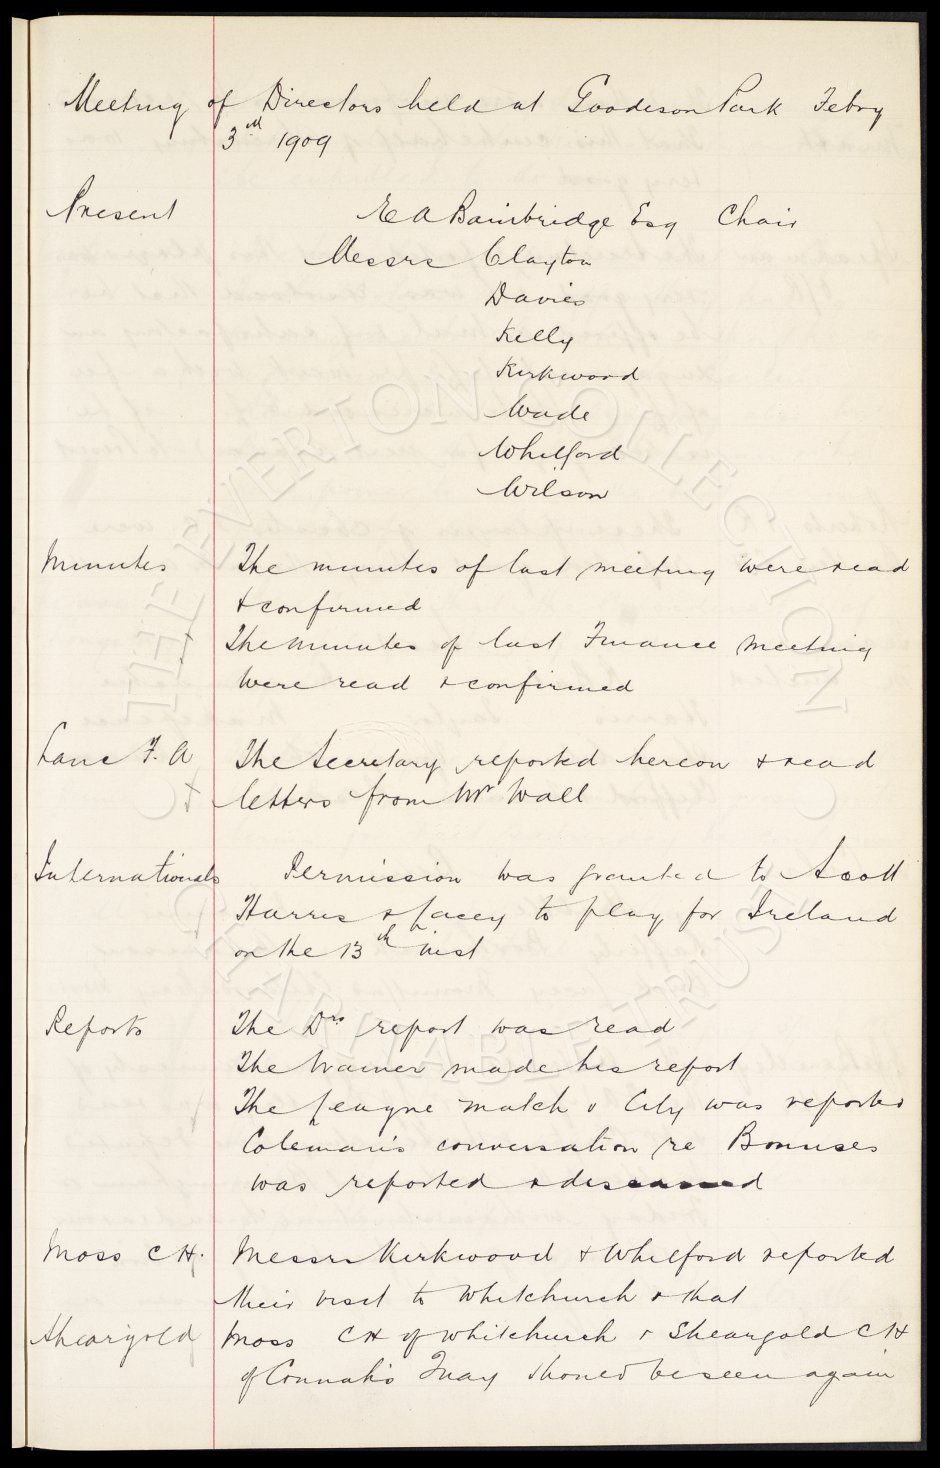 Meeting of Directors held at Goodison Park Febry
3rd 1909
Present E A Bainbridge Esq Chair
Messrs Clayton
Davies
Kelly
Kirkwood
Wade
Whitford
Wilson
Minutes The minutes of last meeting were read
& confirmed
The minutes of last Finance Meeting
were read & confirmed
Lanc F. A The Secretary reported hereon & read
letters from Mr Wall
Internationals Permission was granted to Scott
Harris & Lacey to play for Ireland
on the 13th inst
Reports The Drs report was read
The trainer made his report
The League match v City was reported
Coleman's conversation re Bonuses
was reported & discussed
Moss CH. Messrs Kirkwood & Whitford reported
their visit to Whitchurch & that
Sheargold Moss CH of Whitchurch & Sheargold CH
of Connah's Quay should be seen again
THE EVERTON COLLECTION
CHARITABLE TRUST